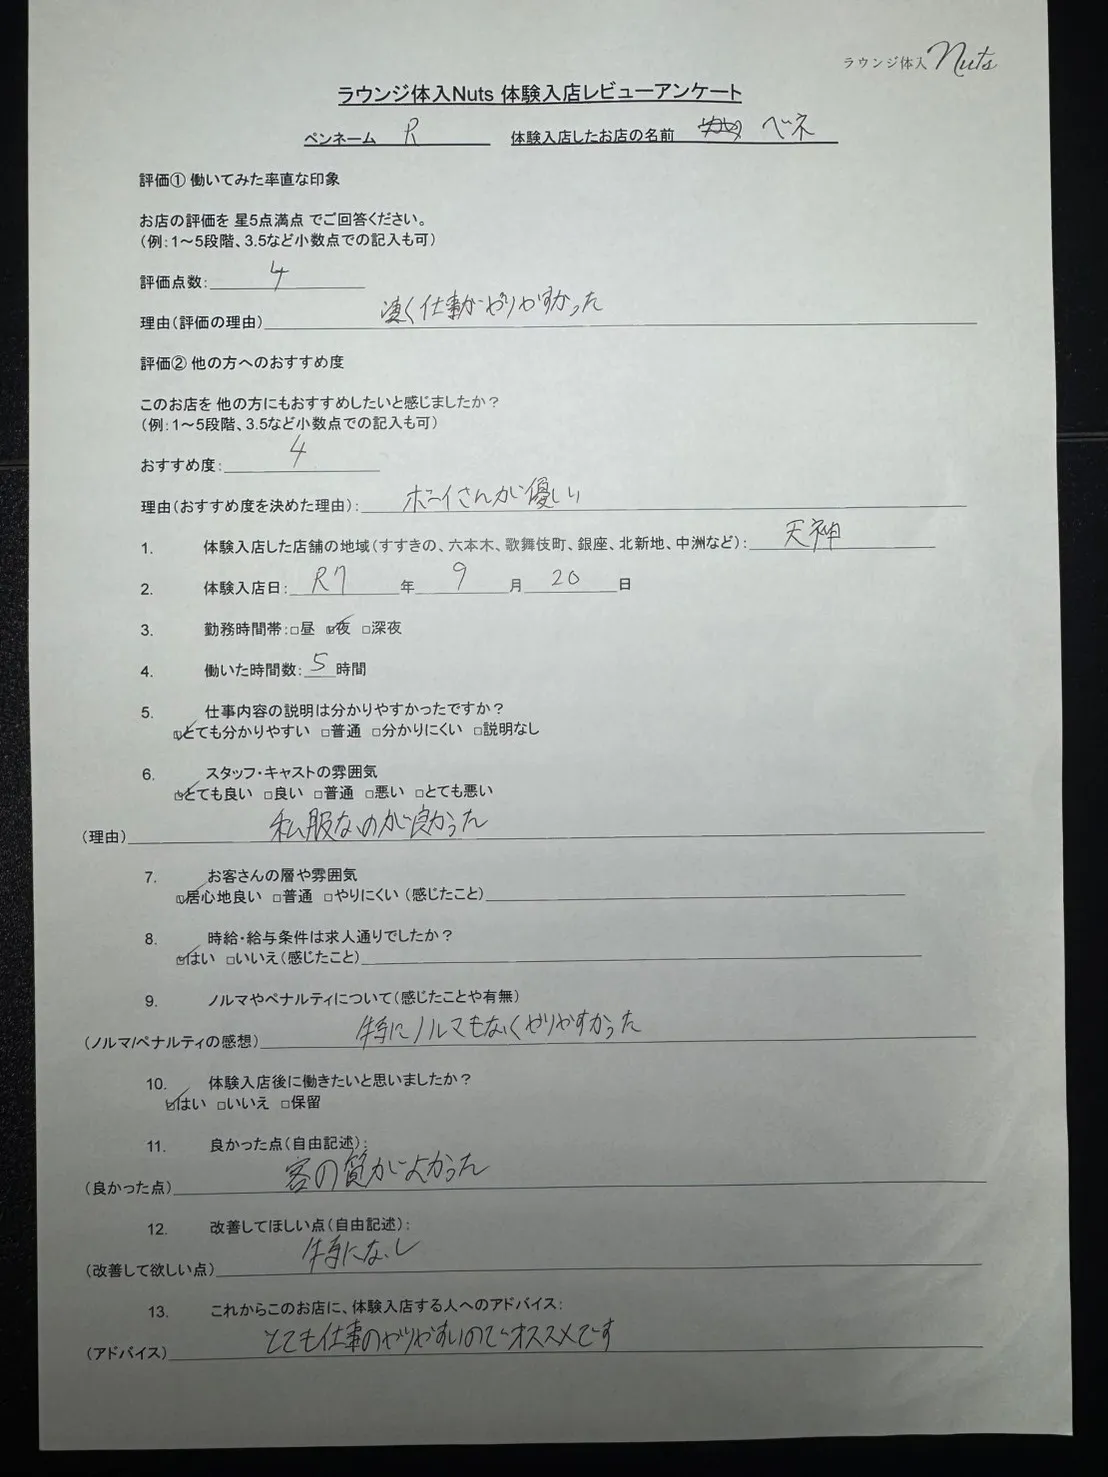 ラウンジ体入 Nuts
ラウンジ体入Nuts 体験入店レビューアンケート
ペンネーム R 体験入店したお店の名前 ベネ
評価① 働いてみた率直な印象
お店の評価を 星5点満点 でご回答ください。
（例：1～5段階、3.5など小数点での記入も可）
評価点数: 4
理由（評価の理由） 凄く仕事がやりやすかった
評価② 他の方へのおすすめ度
このお店を 他の方にもおすすめしたいと感じましたか？
（例：1～5段階、3.5など小数点での記入も可）
おすすめ度: 4
理由（おすすめ度を決めた理由）: ボーイさんが優しい
1. 体験入店した店舗の地域（すすきの、六本木、歌舞伎町、銀座、北新地、中洲など）: 天神
2. 体験入店日: R7 年 9 月 20 日
3. 勤務時間帯: □昼 ☑夜 □深夜
4. 働いた時間数: 5 時間
5. 仕事内容の説明は分かりやすかったですか？
☑とても分かりやすい □普通 □分かりにくい □説明なし
6. スタッフ・キャストの雰囲気
☑とても良い □良い □普通 □悪い □とても悪い
（理由） 私服なのが良かった
7. お客さんの層や雰囲気
☑居心地良い □普通 □やりにくい（感じたこと）
8. 時給・給与条件は求人通りでしたか？
☑はい □いいえ（感じたこと）
9. ノルマやペナルティについて（感じたことや有無）
（ノルマ/ペナルティの感想） 特にノルマもなくやりやすかった
10. 体験入店後に働きたいと思いましたか？
☑はい □いいえ □保留
11. 良かった点（自由記述）:
（良かった点） 客の質がよかった
12. 改善してほしい点（自由記述）:
（改善して欲しい点） 特になし
13. これからこのお店に、体験入店する人へのアドバイス:
（アドバイス） とても仕事のやりやすいのでオススメです